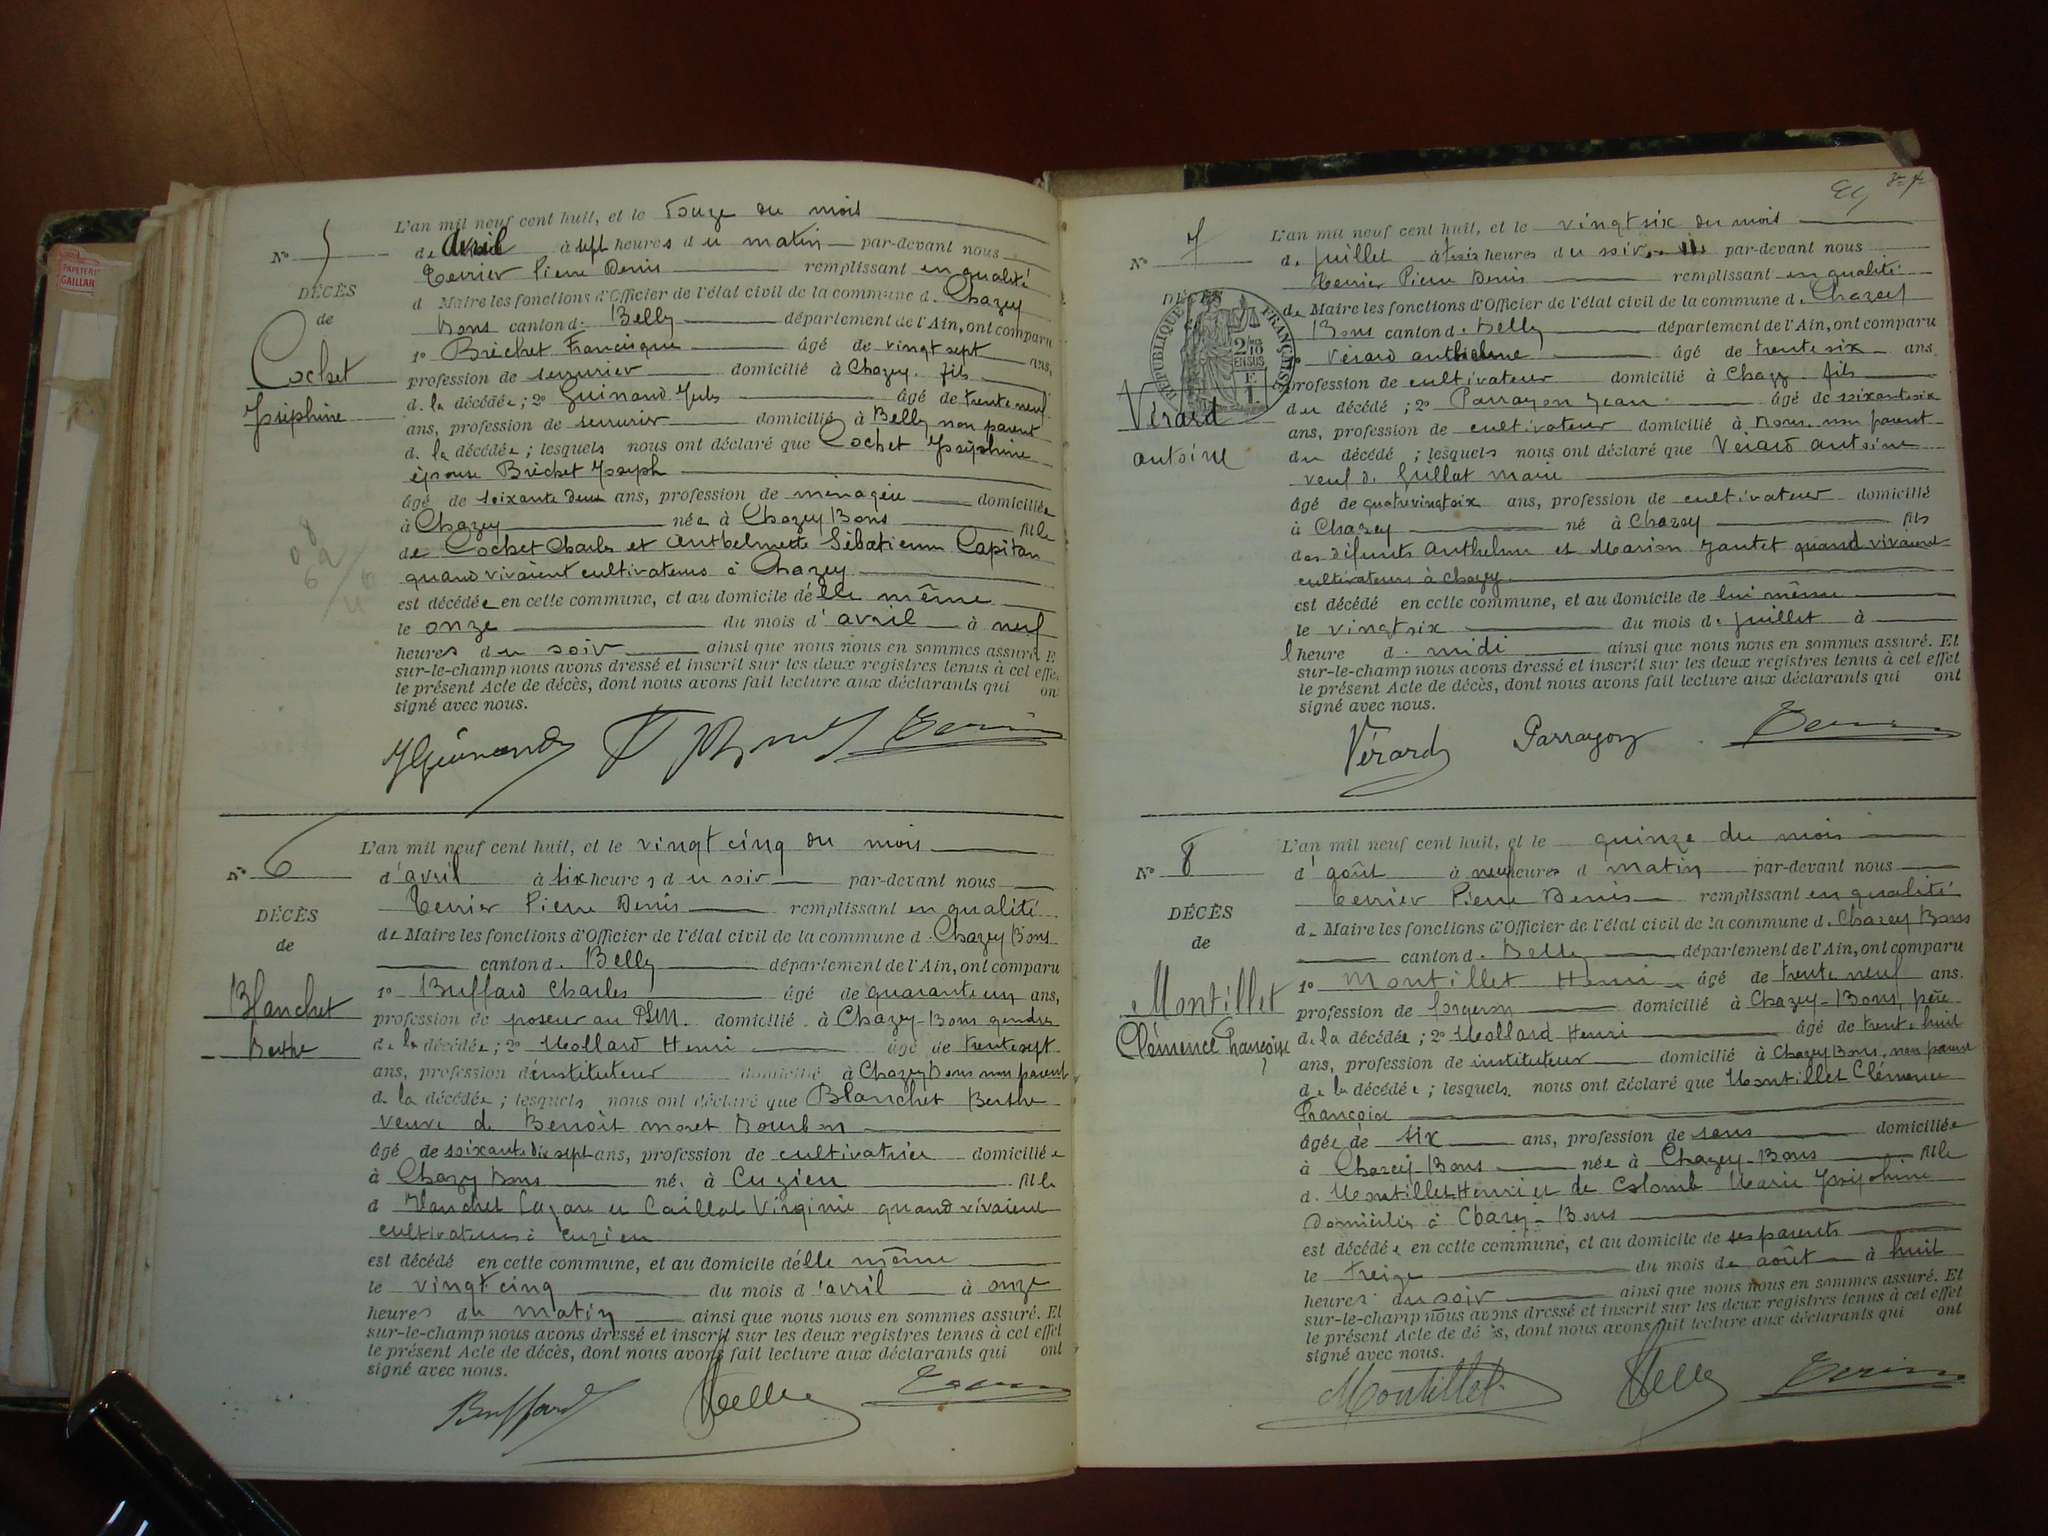 PAPETERIE
GAILLAR
L'an mil neuf cent huit, et le Douze du mois
N° 5
de Avril à sept heures du matin par-devant nous
Terrier Pierre Denis remplissant en qualité
DÉCÈS
d Maire les fonctions d'Officier de l'état civil de la commune d. Chazey
de
Bons canton d. Belly département de l'Ain, ont comparu
1° Bréchet Francisque âgé de vingt sept ans,
Cochet
profession de serrurier domicilié à Chazey. fils
Joséphine
d. la décédée; 2° Guinand Jules âgé de trente neuf
ans, profession de serrurier domicilié à Belly non parent
d. la décédée; lesquels nous ont déclaré que Cochet Joséphine
épouse Bréchet Joseph
âgé de soixante deux ans, profession de ménagère domiciliée
à Chazey née à Chazey Bons fille
de Cochet Charles et Anthelmette Sébatienne Capitan
quand vivaient cultivateurs à Chazey
est décédée en cette commune, et au domicile d'elle même
le onze du mois d'avril à neuf
heures du soir ainsi que nous nous en sommes assuré. E
sur-le-champ nous avons dressé et inscrit sur les deux registres tenus à cet effe
le présent Acte de décès, dont nous avons fait lecture aux déclarants qui on
signé avec nous.
JGuinand
L'an mil neuf cent huit, et le vingt cinq du mois
N° 6
d'avril à six heures du soir par-devant nous
Terrier Pierre Denis remplissant en qualité
DÉCÈS
de Maire les fonctions d'Officier de l'état civil de la commune d. Chazey Bons
de
canton d. Belly département de l'Ain, ont comparu
Blanchet
1° Buffard Charles âgé de quarante un ans,
profession de poseur au PLM. domicilié à Chazey-Bons gendre
Berthe
de la décédée; 2° Mollard Henri âgé de trente sept
ans, profession d'instituteur domicilié à Chazey Bons non parent
d. la décédée; lesquels nous ont déclaré que Blanchet Berthe
veuve de Benoît moret Bourbon
âgé de soixante dix sept ans, profession de cultivatrice domiciliée
à Chazey Bons né. à Cuzieu fille
d Blanchet Lazare et Caillat Virginie quand vivaient
cultivateurs à Cuzieu
est décédé en cette commune, et au domicile d'elle même
le vingt cinq du mois d'avril à onze
heures du matin ainsi que nous nous en sommes assuré. Et
sur-le-champ nous avons dressé et inscrit sur les deux registres tenus à cet effet
le présent Acte de décès, dont nous avons fait lecture aux déclarants qui ont
signé avec nous.
Buffard
L'an mil neuf cent huit, et le vingt six du mois
N° 7
de juillet à trois heures du soir par-devant nous
Terrier Pierre Denis remplissant en qualité
DÉCÈS
de Maire les fonctions d'Officier de l'état civil de la commune d. Chazey
RÉPUBLIQUE FRANÇAISE
2/10 EN SUS
Bons canton d. Belly département de l'Ain, ont comparu
Vérard anthelme âgé de trente six ans.
profession de cultivateur domicilié à Chazey fils
Vérard
du décédé; 2° Parrayon Jean âgé de soixante six
ans, profession de cultivateur domicilié à Bons. non parent
antoine
du décédé; lesquels nous ont déclaré que Vérard antoine
veuf de Jullat marie
âgé de quatrevingt six ans, profession de cultivateur domicilié
à Chazey né à Chazey fils
des défunts Anthelme et Marion Jantet quand vivaient
cultivateurs à Chazey.
est décédé en cette commune, et au domicile de lui même
le vingt six du mois de juillet à
l heure d. midi ainsi que nous nous en sommes assuré. Et
sur-le-champ nous avons dressé et inscrit sur les deux registres tenus à cet effet
le présent Acte de décès, dont nous avons fait lecture aux déclarants qui ont
signé avec nous.
Vérard Parrayon
L'an mil neuf cent huit, et le quinze du mois
N° 8
d'août à neuf heures d matin par-devant nous
Terrier Pierre Denis remplissant en qualité
DÉCÈS
d. Maire les fonctions d'Officier de l'état civil de la commune d. Chazey Bons
de
canton d. Belly département de l'Ain, ont comparu
1° Montillet Henri âgé de trente neuf ans.
Montillet
profession de forgeron domicilié à Chazey-Bons, père
Clémence Françoise
d. la décédée; 2° Mollard Henri âgé de trente huit
ans, profession de instituteur domicilié à Chazey Bons, non parent
de la décédée; lesquels nous ont déclaré que Montillet Clémence
Françoise
âgée de six ans, profession de sans domiciliée
à Chazey-Bons née à Chazey-Bons fille
d. Montillet Henri et de Colomb Marie Joséphine
domiciliés à Chazey-Bons
est décédée en cette commune, et au domicile de ses parents
le treize du mois de août à huit
heures du soir ainsi que nous nous en sommes assuré. Et
sur-le-champ nous avons dressé et inscrit sur les deux registres tenus à cet effet
le présent Acte de décès, dont nous avons fait lecture aux déclarants qui ont
signé avec nous.
Montillet